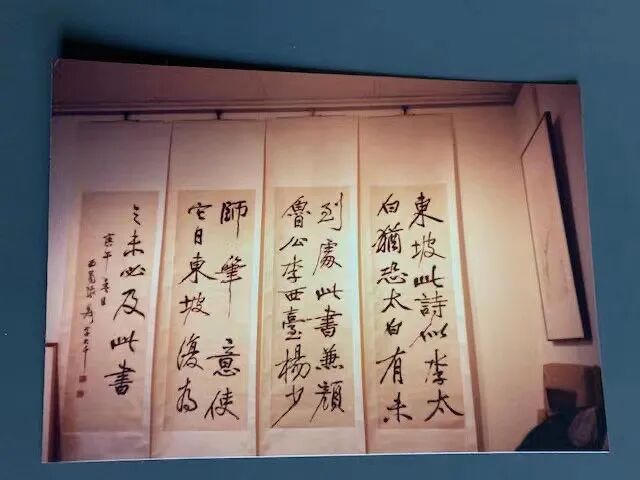 東坡此詩似李太
白猶恐太白有未
到處此書兼顏
魯公李西臺楊少
師筆意使
它日東坡復為
之未必及此書
庚午
西蜀張爰大千